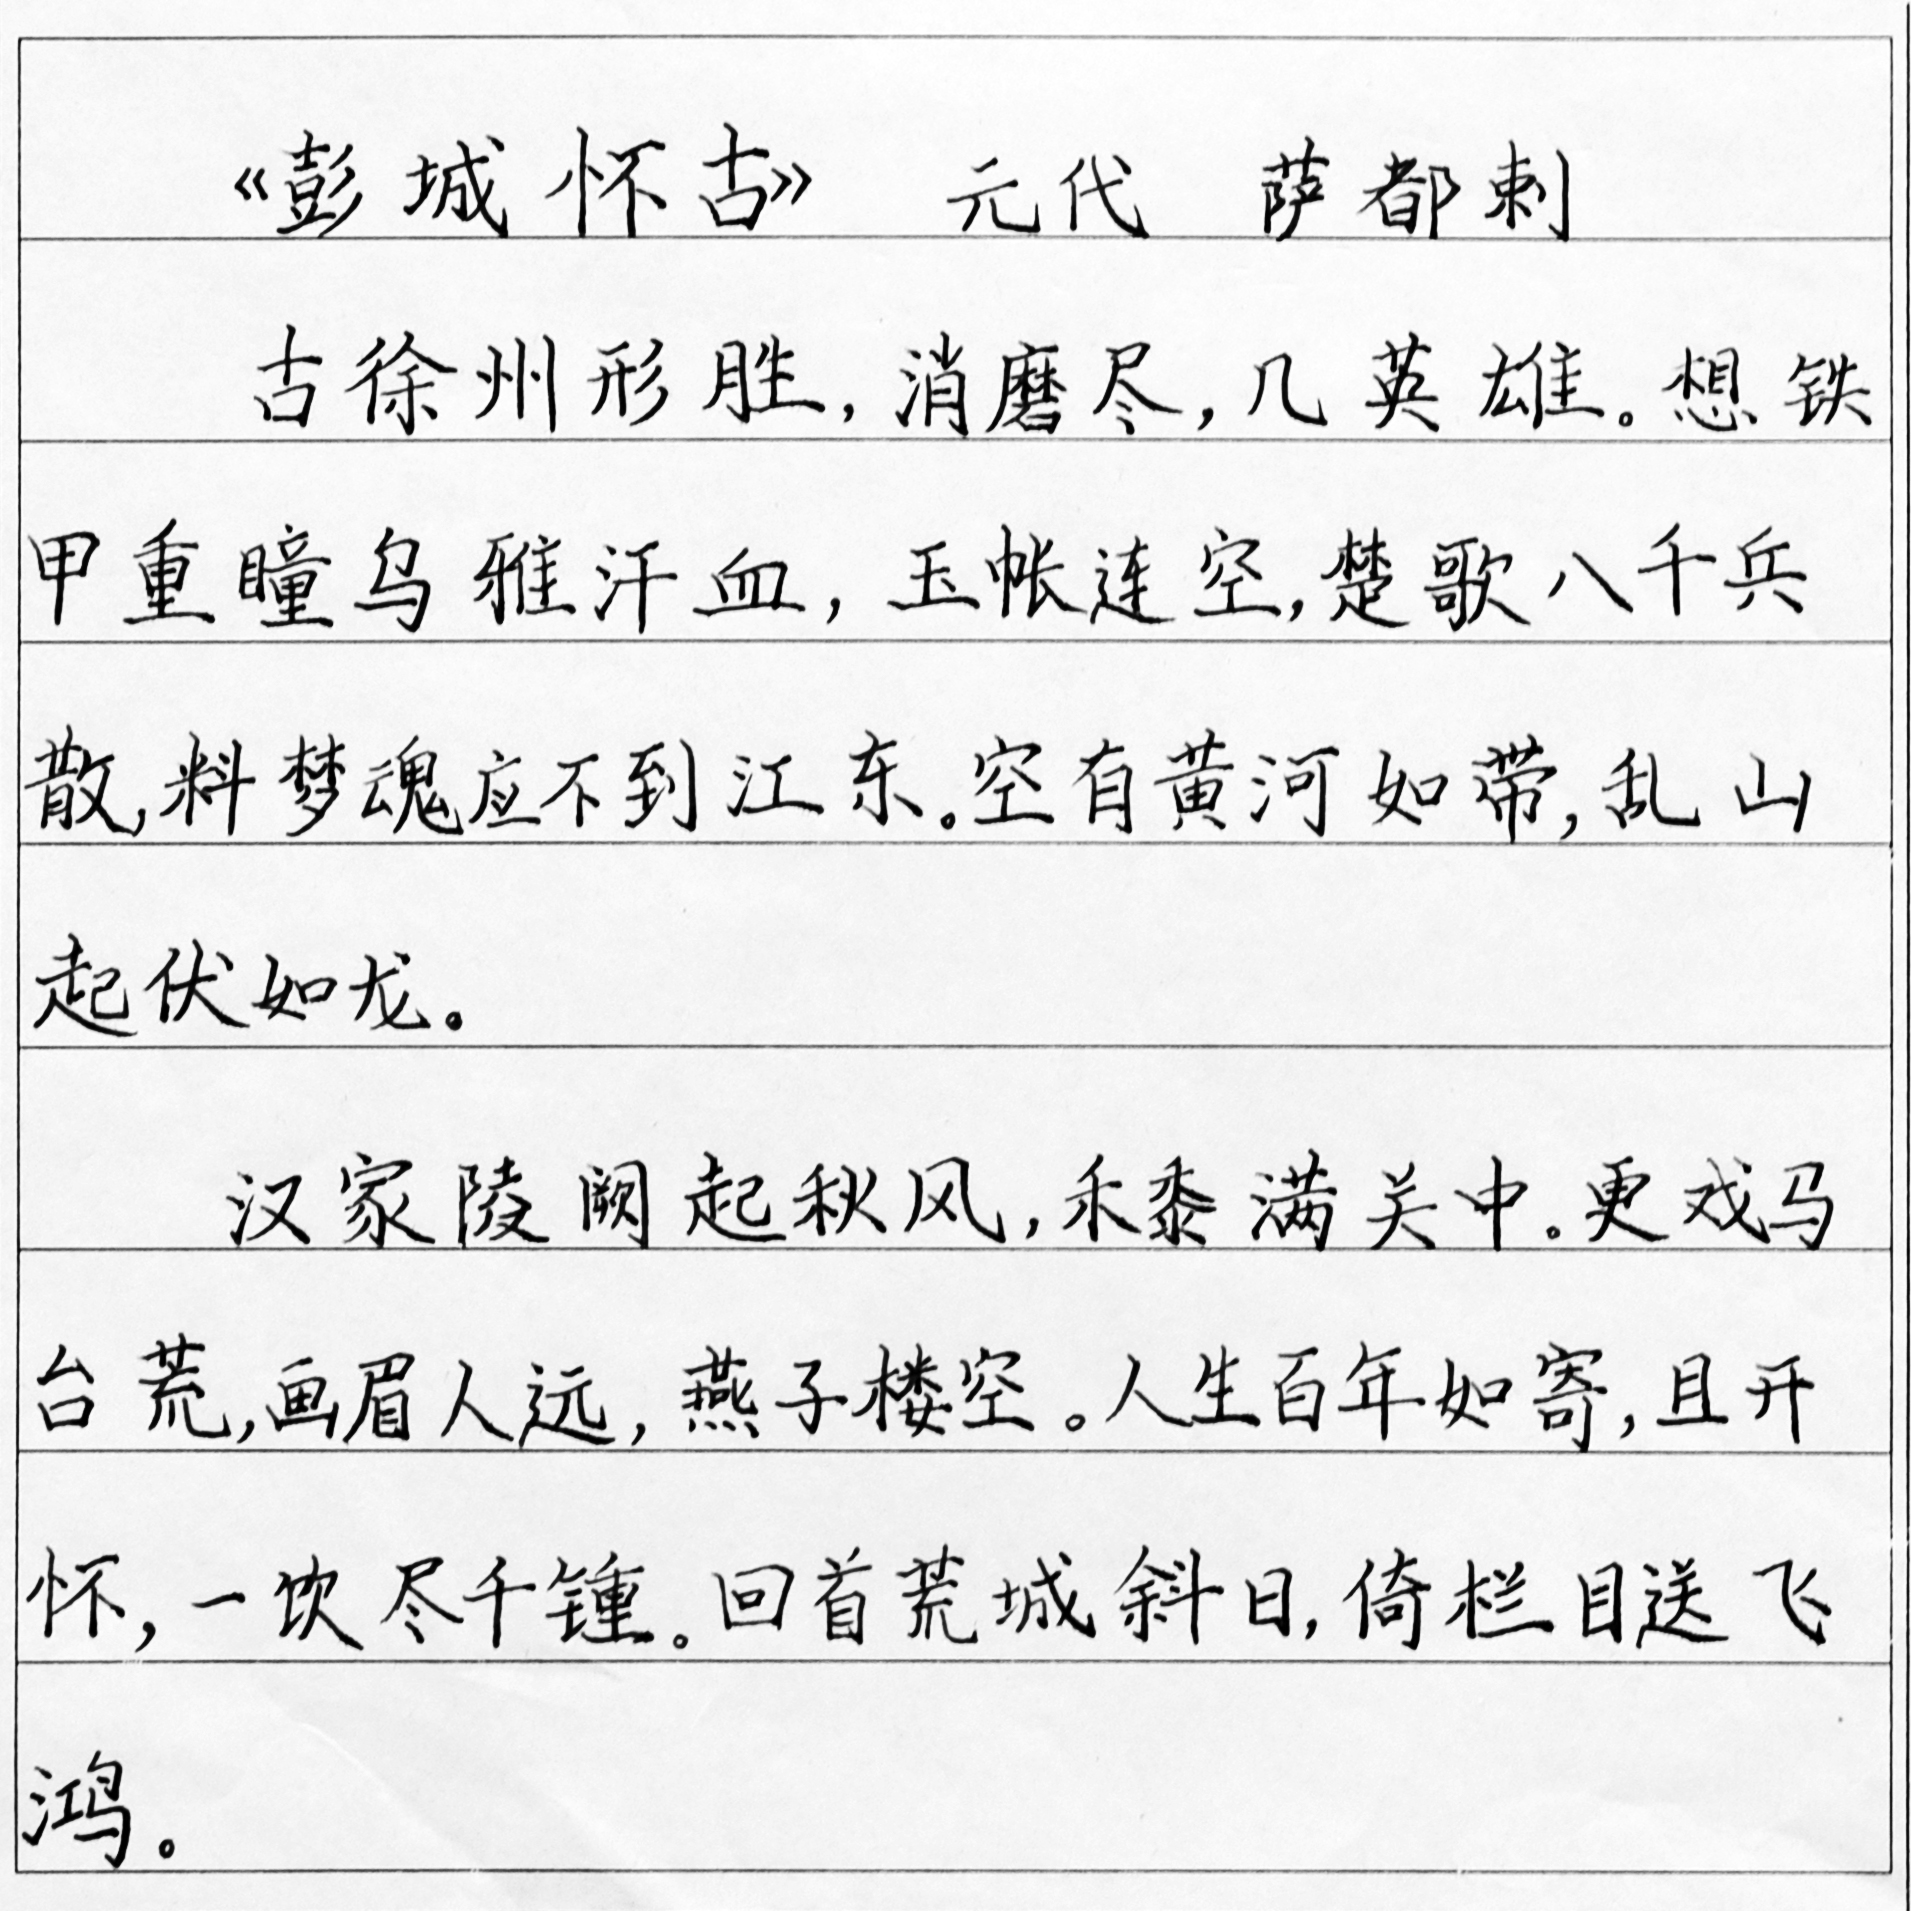 《彭城怀古》 元代 萨都剌
古徐州形胜,消磨尽,几英雄。想铁
甲重瞳乌雅汗血,玉帐连空,楚歌八千兵
散,料梦魂应不到江东。空有黄河如带,乱山
起伏如龙。
汉家陵阙起秋风,禾黍满关中。更戏马
台荒,画眉人远,燕子楼空。人生百年如寄,且开
怀,一饮尽千锺。回首荒城斜日,倚栏目送飞
鸿。